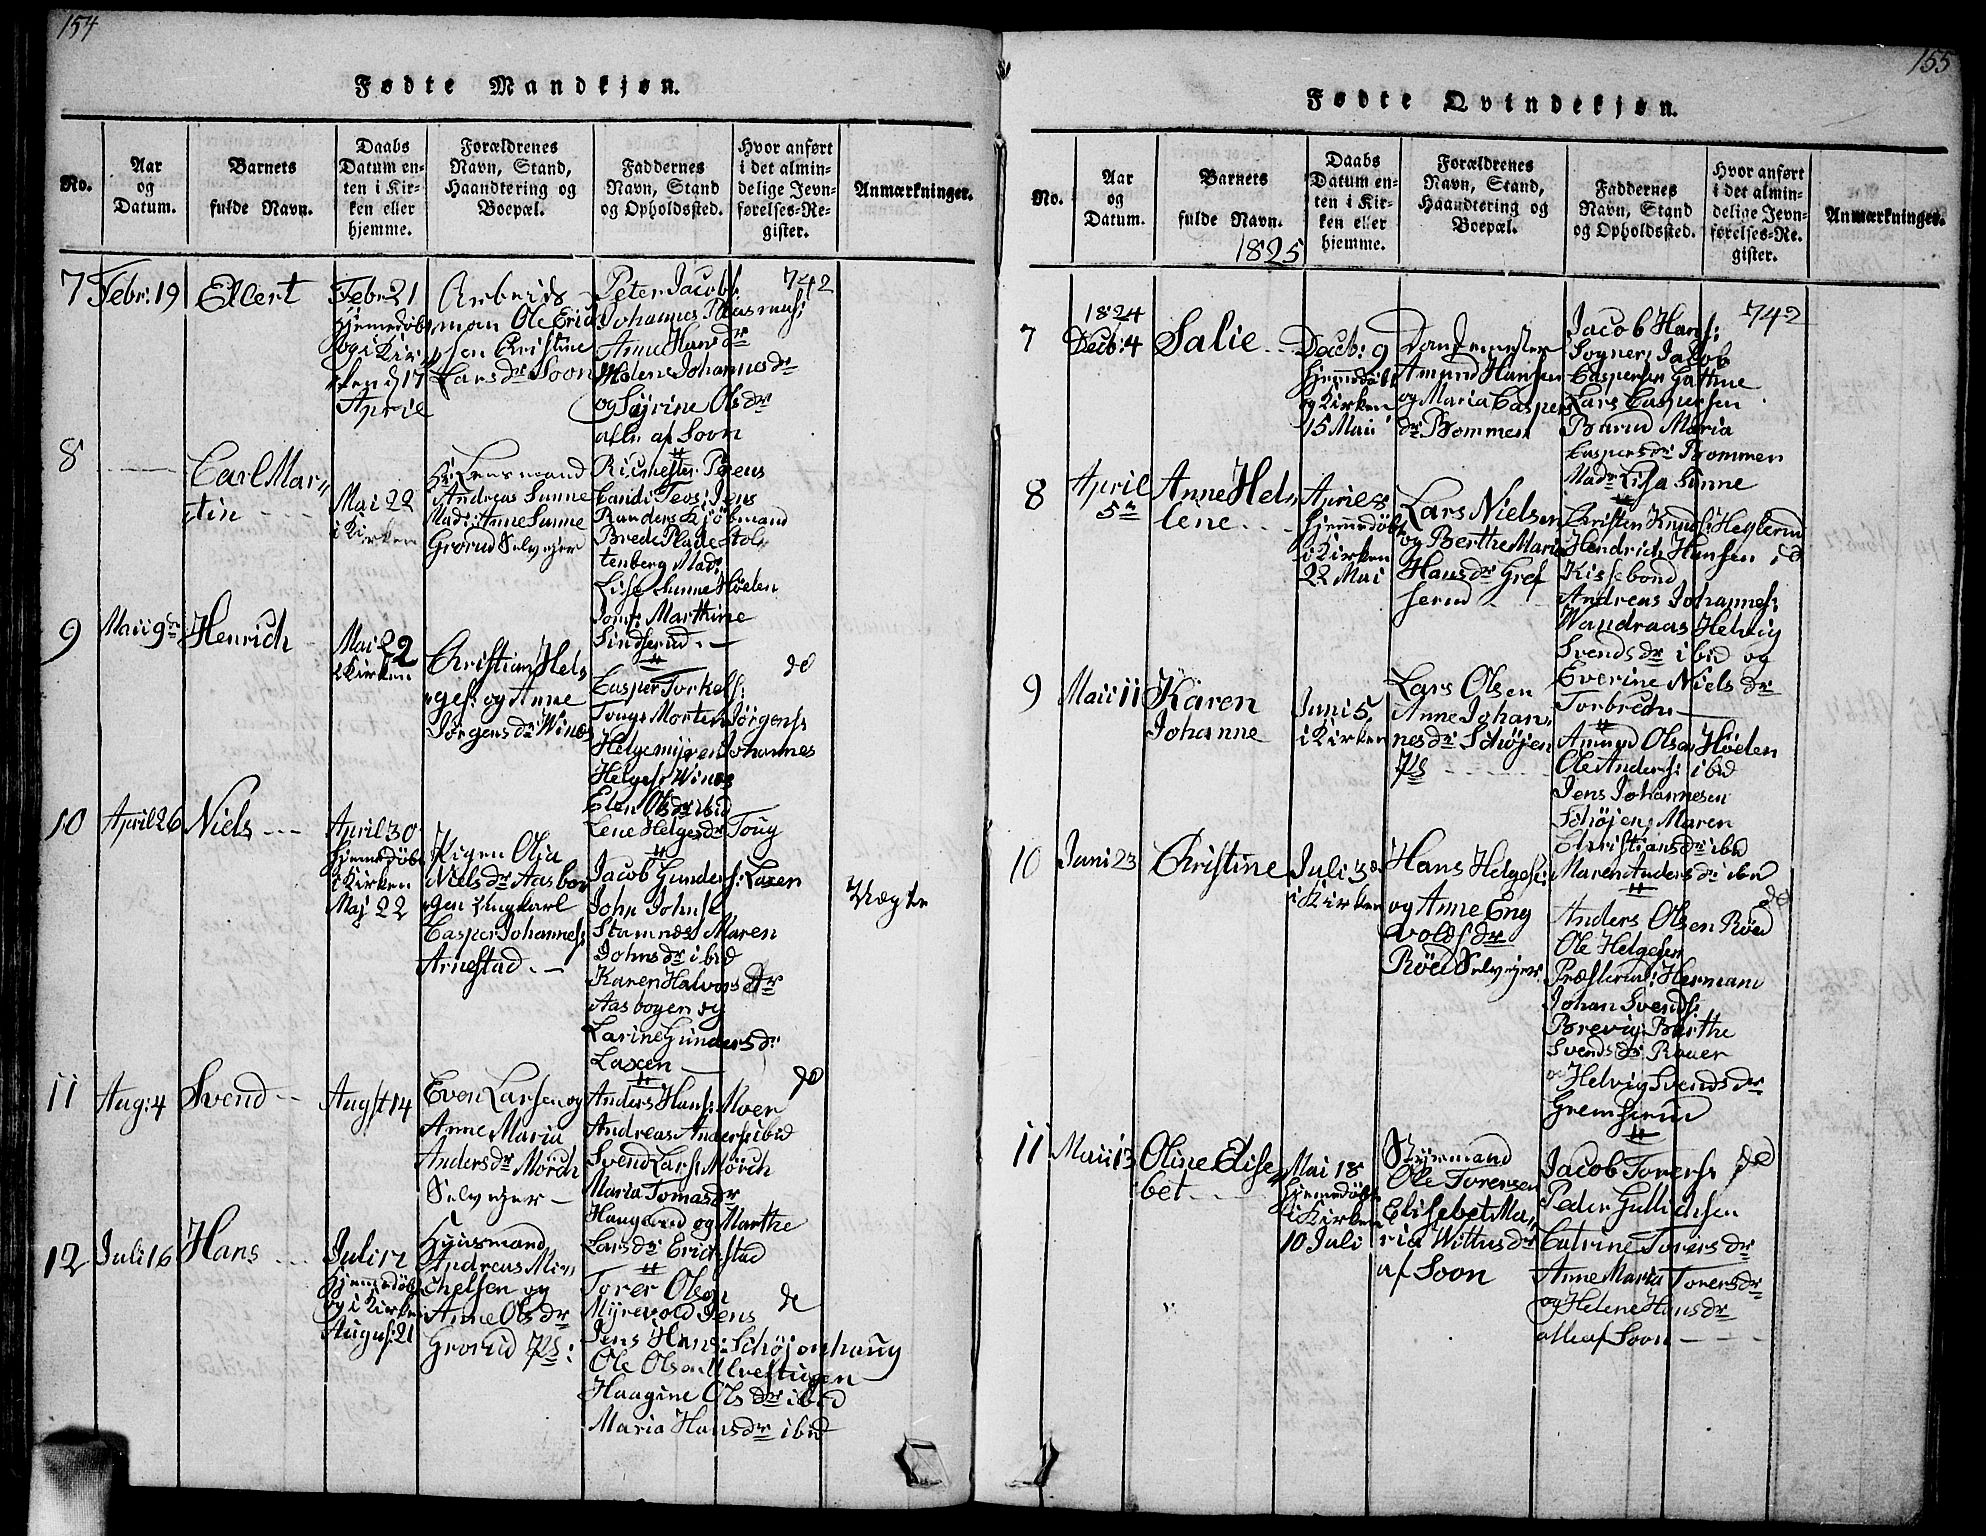 154
Fødte Mandkjøn.
No.
Aar
og
Datum.
Barnets
fulde Navn.
Daabs
Datum en-
ten i Kir-
ken eller
hjemme.
Forældrenes
Navn, Stand,
Haandtering og
Boepæl.
Faddernes
Navn, Stand
og Opholdssted.
Hvor anført
i det almin-
delige Jevn-
førelses-Re-
gister.
Anmærkninger.
7
Febr: 19
Elert
Febr 21
hjemedøbt
og i Kir
ken d 17
April
Arbeids
man Ole Erich
sen Christine
Larsdr Soon
Peter Jacobs:
Johannes Rasmus:
Anne Hansdr
Helene Johannesdr
og Syrine Olsdr
alle af Soon
742
8
Carl Mar„
tin
Mai 22
i Kirken
Hr Lensmand
Andreas Sunne
Mad: Anne Sunne
Grorud Selvejer
Jens
Randers Kjöbmand
Brede Plade Stol
tenberg Mad:
Lise Sunne Høelen
Jomf: Marthine
9
Maii 9de
Henrich
Mai 22
i Kirken
Christian Hel
ges: og Anne
Jörgensdr Winæs
Casper Torkels:
Toug Morten Jörgens:
Helgemyren Johannes
Helges: Winæs
Elen Olsdr ibid
Lene Helgesdr Toug
do
10
April 26
Niels
April 30
hjemedöbt
i Kirken
Maj 22
Pigen Olia
Nielsdr Aasbo
gen Ungkarl
Casper Johannes:
Arnestad
Jacob Gunders: Laxen
John Johns:
Stamnæs Maren
Johnsdr ibid
Karen Halvorsdr
Aasbogen og
Larine Gundersdr
Laxen
Uægte
11
Aug: 4
Svend
Augst 14
Even Larsen og
Anne Maria
Andersdr Mörch
Selvejer
Anders Hans: Moer
Andreas Anders: ibid
Svend Lars: Mörch
Maria Tomasdr
Haugerud og Marthe
Larsdr Erichstad
do
12
Juli 16
Hans
Juli 17
hjemedöbt
og i Kirken
August: 21
Huusmand
Andreas Mi„
chelsen og
Anne Olsdr
Grorud Pls:
Torer Olsen
Myrevold Jens
Jens Hans: Schöjenhaug
Ole Olsen Ulvestigen
Haagine Olsdr ibid
Maria Hansdr ibid
do
155
Fødte Qvindekjøn.
No.
Aar
og
Datum.
Barnets
fulde Navn.
1825
Daabs
Datum en-
ten i Kir-
ken eller
hjemme.
Forældrenes
Navn, Stand,
Haandtering og
Boepæl.
Faddernes
Navn, Stand
og Opholdssted.
Hvor anført
i det almin-
delige Jevn-
førelses-Re-
gister.
Anmærkninger.
7
1824
Decb: 4
Salie
Decb: 9
hjemdöbt
og Kirken
15 Maii
Amund Hansen
og Maria Caspers
dr Brommen
Jacob Hans:
Sogner Jacob
Caspersen
Lars Caspersen
Maria
Caspersdr Brommen
Madr Lisa Sunne
742
8
April
5te
Anne Hel„
lene
April 8
hjemedöbt
i Kirken
22 Mai
Lars Nielsen
og Berthe Maria
Hansdr Gref
serud
Christen Knuds: Heglerud
Hendrich Hansen
Kissebond
Andreas Johannes:
Wandraas Helvig
Svendsdr ibid og
Everine Nielsdr
Torbreden
do
9
Maii 11
Karen
Johanne
Juni 5
i Kirken
Lars Olsen
Anne Johan„
nesdr Schöjen
Pls
Amund Olsen Høelen
Ole Anders: ibid
Jens Johannesen
Schöjen, Maren
Christiansdr ibid
Maren Andersdr ibid
10
Juni 23
Christine
Juli 3de
i Kirken
Hans Helges:
og Anne Eng
voldsdr
Röed Selvejer
Anders Olsen Röed
Ole Helgesen
Præsterud: Hermand
Johan Svends:
Brevig Berthe
Svendsdr Rauer
og Helvig Svendsdr
Gremserud
do
11
Maii 13
Oline Elise„
bet
Mai 18
hjemedöbt
i Kirken
10 Juli
Styrmand
Ole Torersen
Elisebet Ma„
ria Wittusdr
af Soon
Jacob Torers:
Peder Gullichsen
Catrine Torersdr
Anne Maria Torersdr
og Helene Hansdr
alle af Soon
do